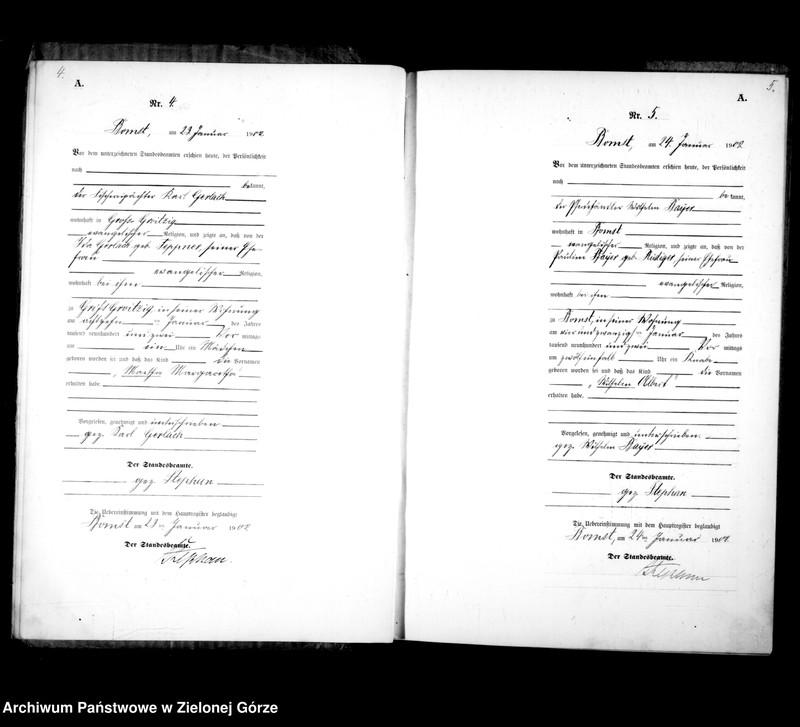 4.
A.
Nr. 4.
Bomst, am 23. Januar 1902.
Vor dem unterzeichneten Standesbeamten erschien heute, der Persönlichkeit
nach
bekannt,
der Karl Gerlach
wohnhaft in Groß
evangelischer Religion, und zeigte an, daß von der
Ida Gerlach geb. seiner Ehe-
frau
evangelischer Religion,
wohnhaft bei ihm
zu Groß in seiner Wohnung
am achtzehn ten Januar des Jahres
tausend neunhundert und zwei Vor mittags
um ein Uhr ein Mädchen
geboren worden sei und daß das Kind die Vornamen
„Martha Margaretha“
erhalten habe.
Vorgelesen, genehmigt und unterschrieben
gez. Karl Gerlach
Der Standesbeamte.
gez. Stephan
Die Uebereinstimmung mit dem Hauptregister beglaubigt
Bomst am 23ten Januar 1902
Der Standesbeamte.
Stephan.
5.
A.
Nr. 5.
Bomst, am 24. Januar 1902.
Vor dem unterzeichneten Standesbeamten erschien heute, der Persönlichkeit
nach
bekannt,
der Wilhelm Bayer
wohnhaft in Bomst
evangelischer Religion, und zeigte an, daß von der
Pauline Bayer geb. Rüdiger, seiner Ehefrau
evangelischer Religion,
wohnhaft bei ihm
zu Bomst, in seiner Wohnung
am vierundzwanzigsten Januar des Jahres
tausend neunhundert und zwei Vor mittags
um Uhr ein Knabe
geboren worden sei und daß das Kind die Vornamen
„Wilhelm Albert“
erhalten habe.
Vorgelesen, genehmigt und unterschrieben
gez. Wilhelm Bayer
Der Standesbeamte.
gez. Stephan
Die Uebereinstimmung mit dem Hauptregister beglaubigt
Bomst, am 24ten Januar 1902.
Der Standesbeamte.
Stephan
Archiwum Państwowe w Zielonej Górze